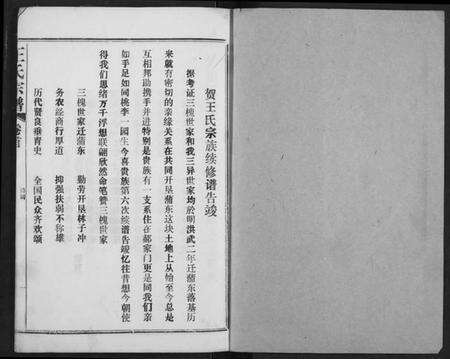 贺王氏宗族续修谱告竣
据考证三槐世家和我三异世家均于明洪武二年迁蒲东落基历
来就有密切的亲缘关系在共同开垦蒲东这块土地上从始至今总是
互相帮助携手并进特别是贵族有一支系住在郝家门更是同我们亲
如手足如同桃李一园生今喜贵族第六次续谱告竣忆往昔想今朝使
得我们思绪万千浮想联翩欣然命笔赞三槐世家
三槐世家迁蒲东 勤劳开垦林子冲
务农经商行厚道 抑强扶弱不称雄
历代贤良垂青史 全国民众齐欢颂
王氏宗谱 卷首